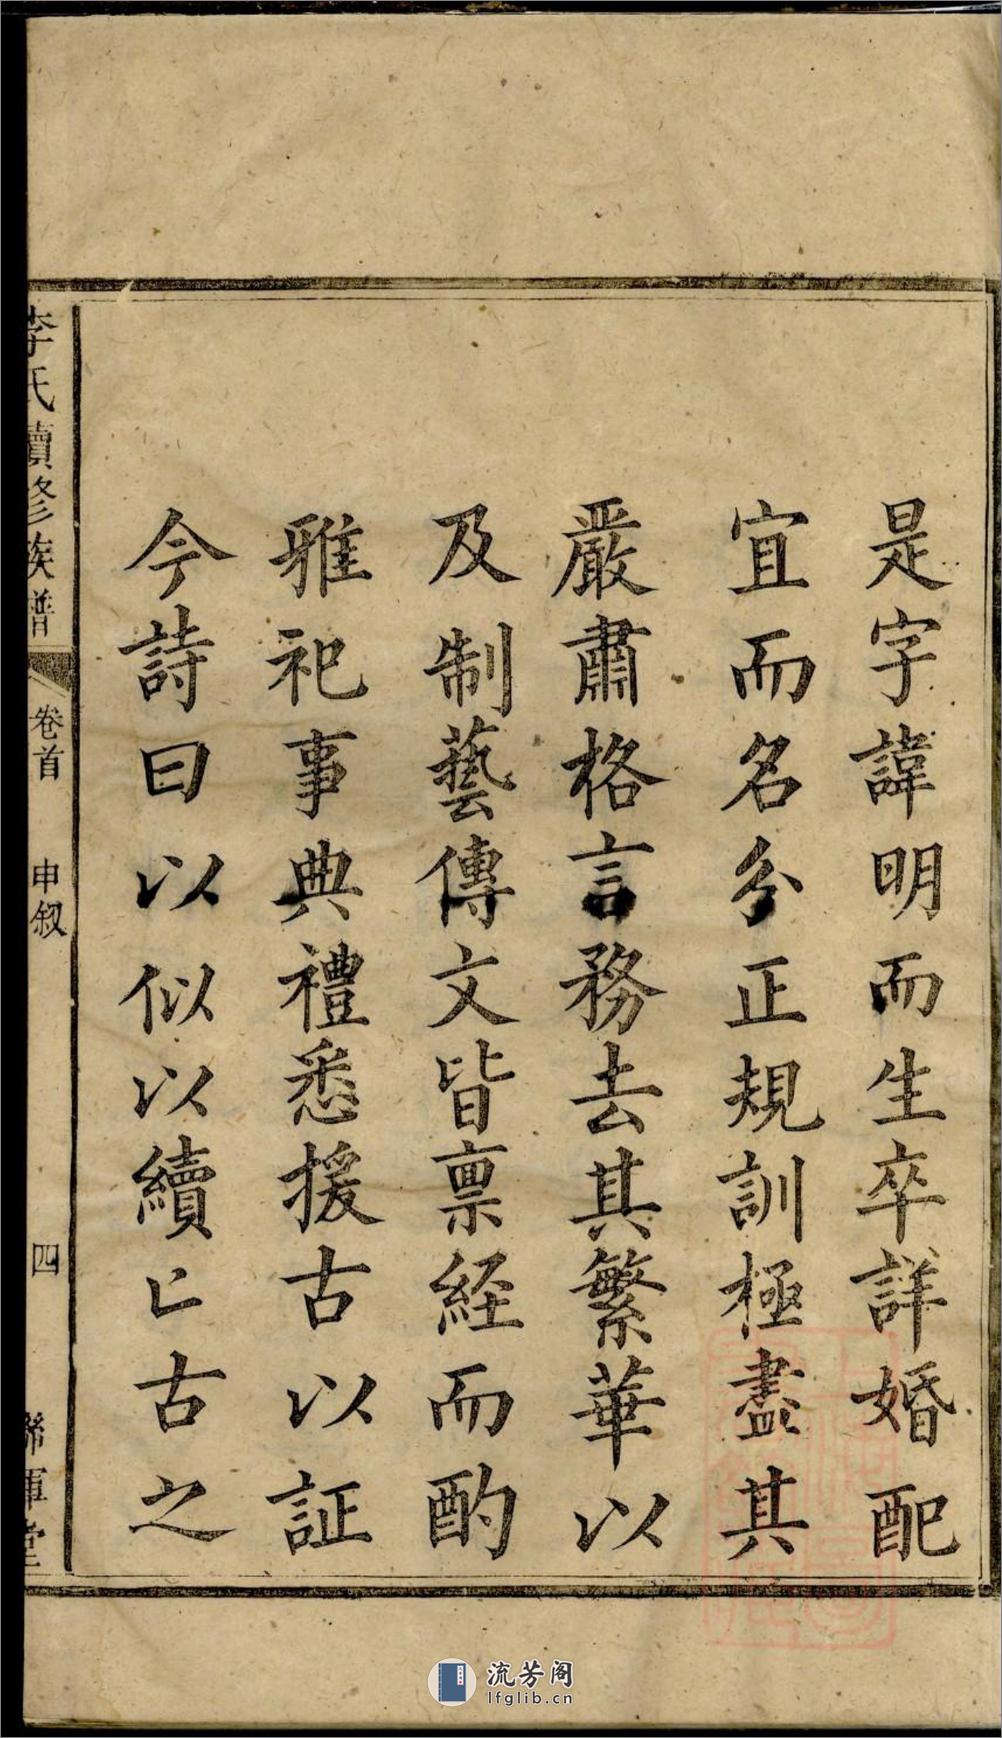 是字諱明而生卒詳婚配
宜而名分正規訓極盡其
嚴肅格言務去其繁華以
及制藝傳文皆禀經而酌
雅祀事典禮悉援古以証
今詩曰以似以續亡古之
李氏續修族譜
卷首
申叙
四
聯軍堂
流芳阁
lfglib.cn